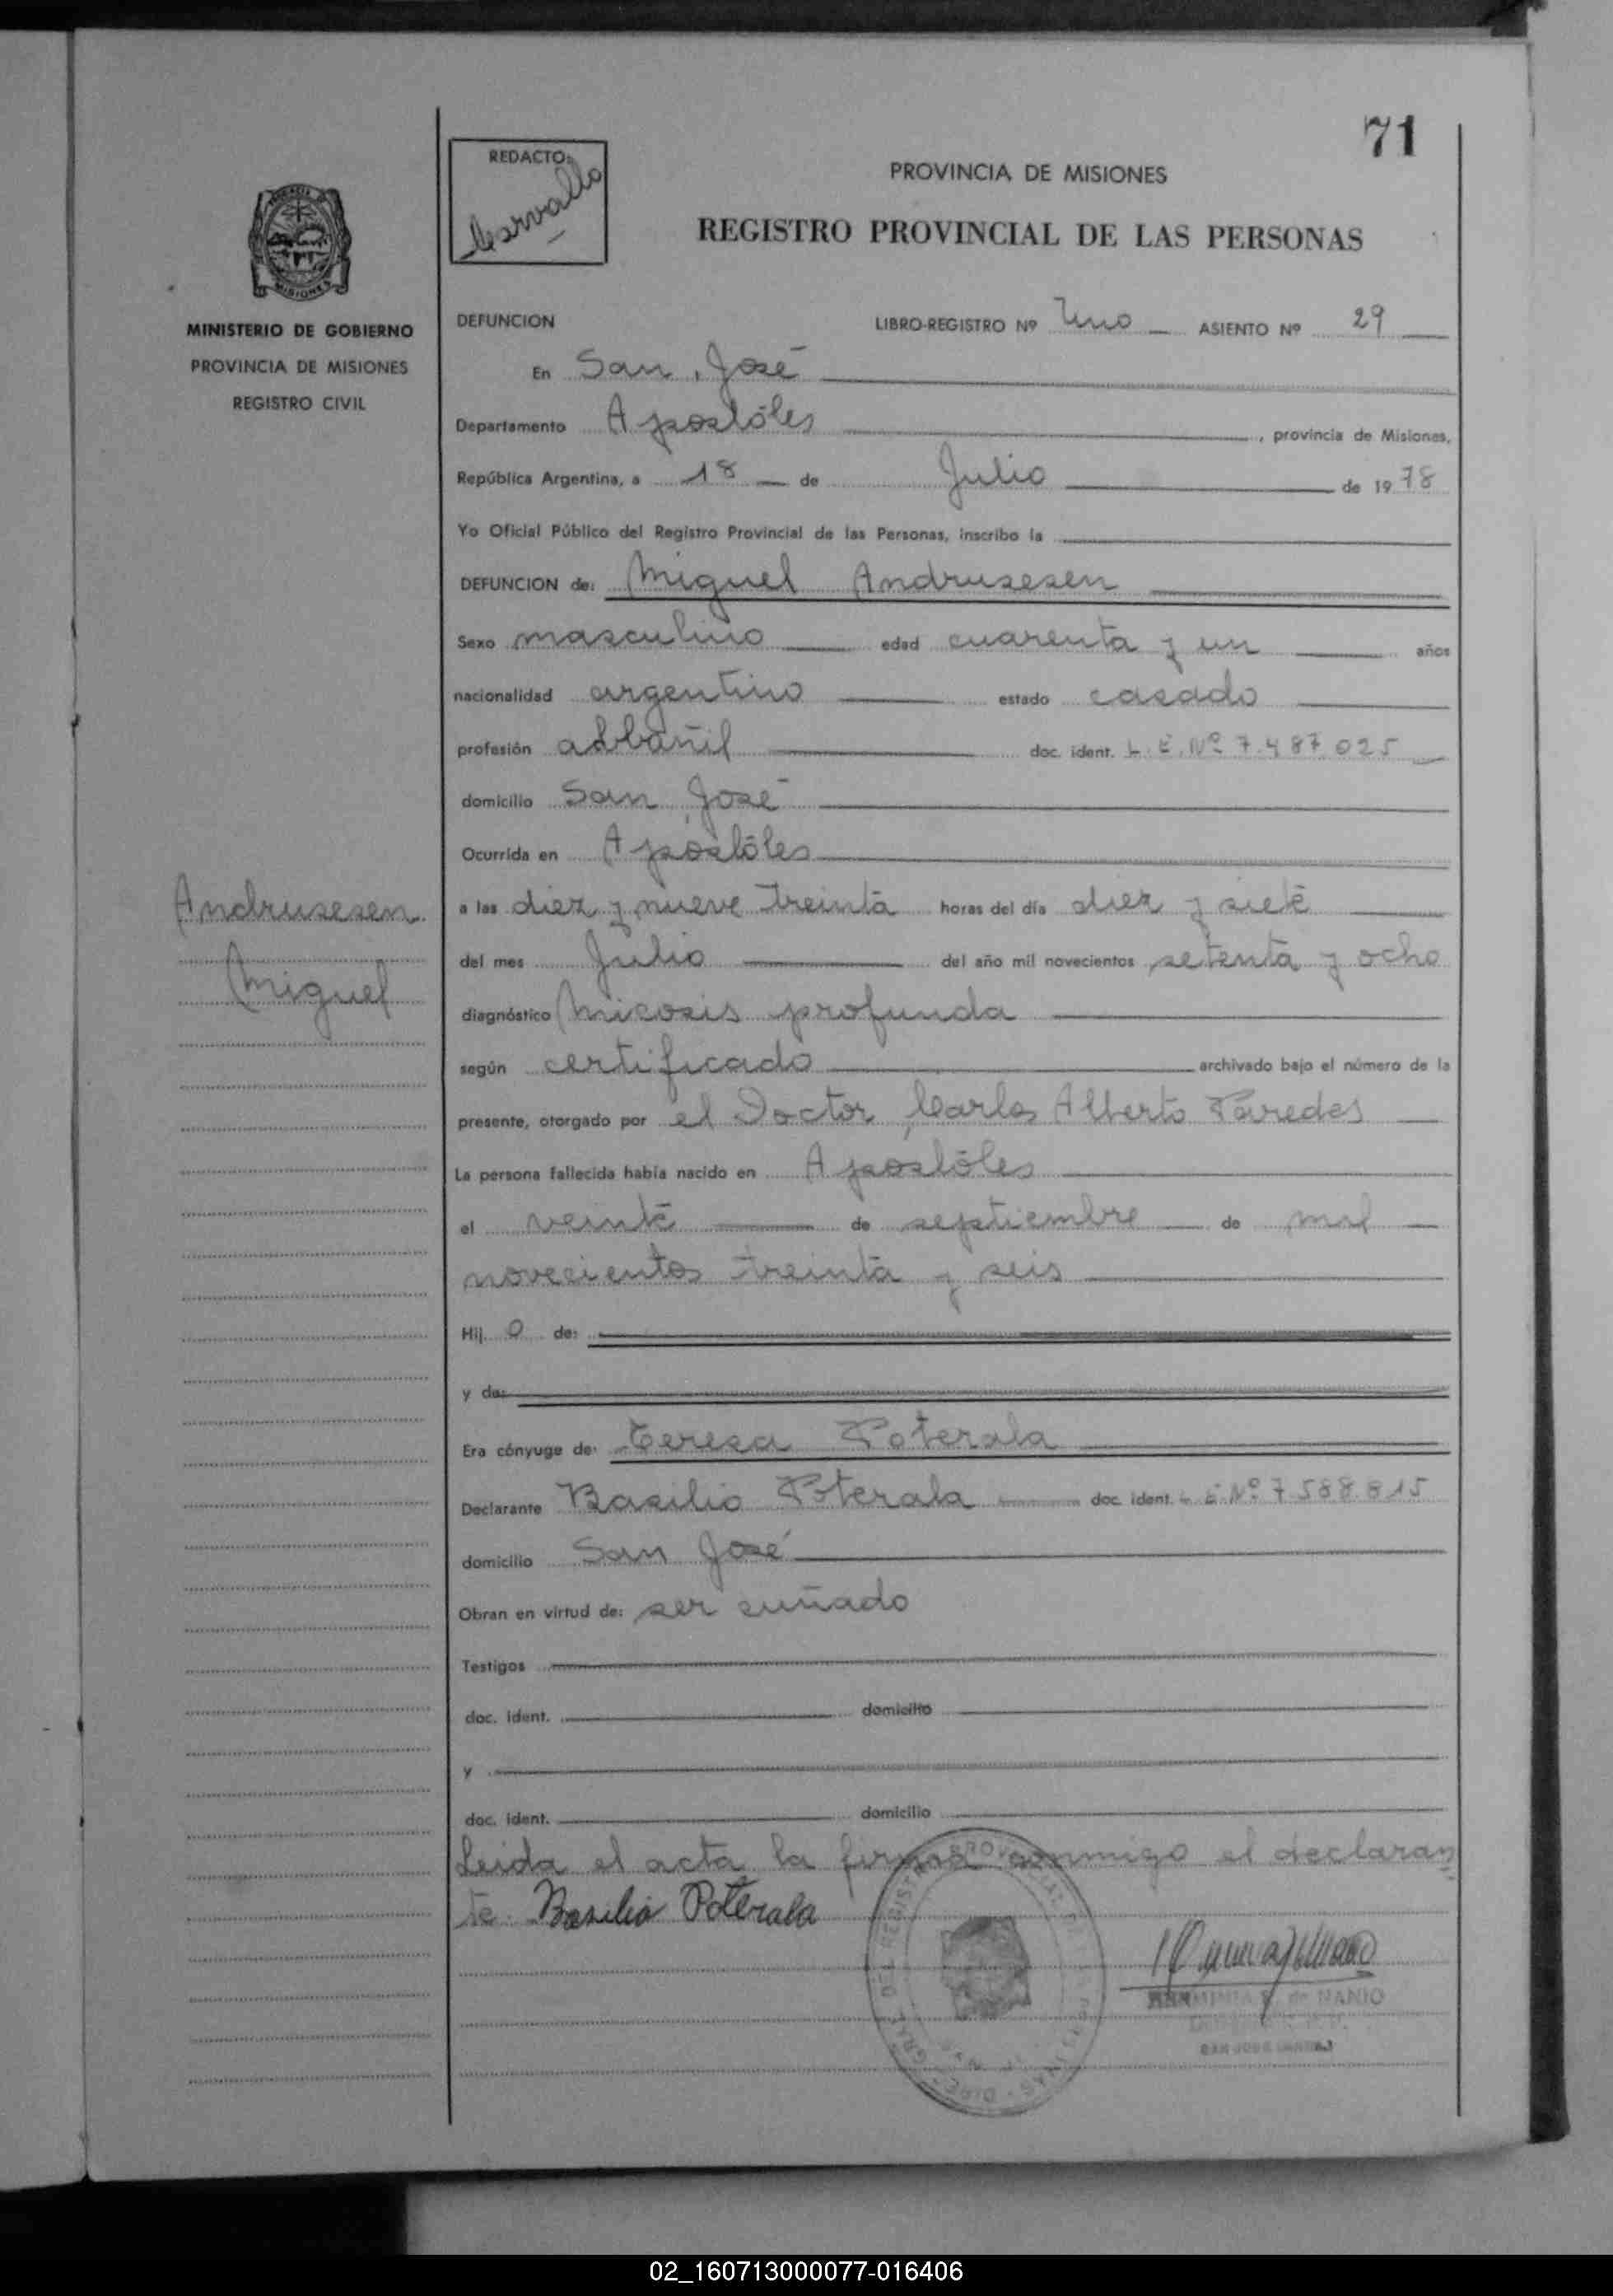 71
REDACTO:
Carvallo
PROVINCIA DE MISIONES
REGISTRO PROVINCIAL DE LAS PERSONAS
MISIONES
MINISTERIO DE GOBIERNO
PROVINCIA DE MISIONES
REGISTRO CIVIL
DEFUNCION LIBRO-REGISTRO Nº Uno ASIENTO Nº 29
En San José
Departamento Apostóles, provincia de Misiones,
República Argentina, a 18 de Julio de 1978
Yo Oficial Público del Registro Provincial de las Personas, inscribo la
DEFUNCION de: Miguel Andrusesen
Sexo masculino edad cuarenta y un años
nacionalidad argentino estado casado
profesión albañil doc. ident. L.E. Nº 7.487.025
domicilio San José
Ocurrida en Apostóles
Andrusesen
Miguel
a las diez y nueve treinta horas del día diez y siete
del mes Julio del año mil novecientos setenta y ocho
diagnóstico Micosis profunda
según certificado archivado bajo el número de la
presente, otorgado por el Doctor Carlos Alberto Paredes
La persona fallecida había nacido en Apostóles
el veinte de septiembre de mil
novecientos treinta y seis
Hij o de:
y de:
Era cónyuge de: Teresa Poterala
Declarante Basilio Poterala doc. ident. L.E. Nº 7.588.815
domicilio San José
Obran en virtud de: ser cuñado
Testigos
doc. ident. domicilio
y
doc. ident. domicilio
Leida el acta la firma conmigo el declaran
te. Basilio Poterala
de NANIO
02_160713000077-016406